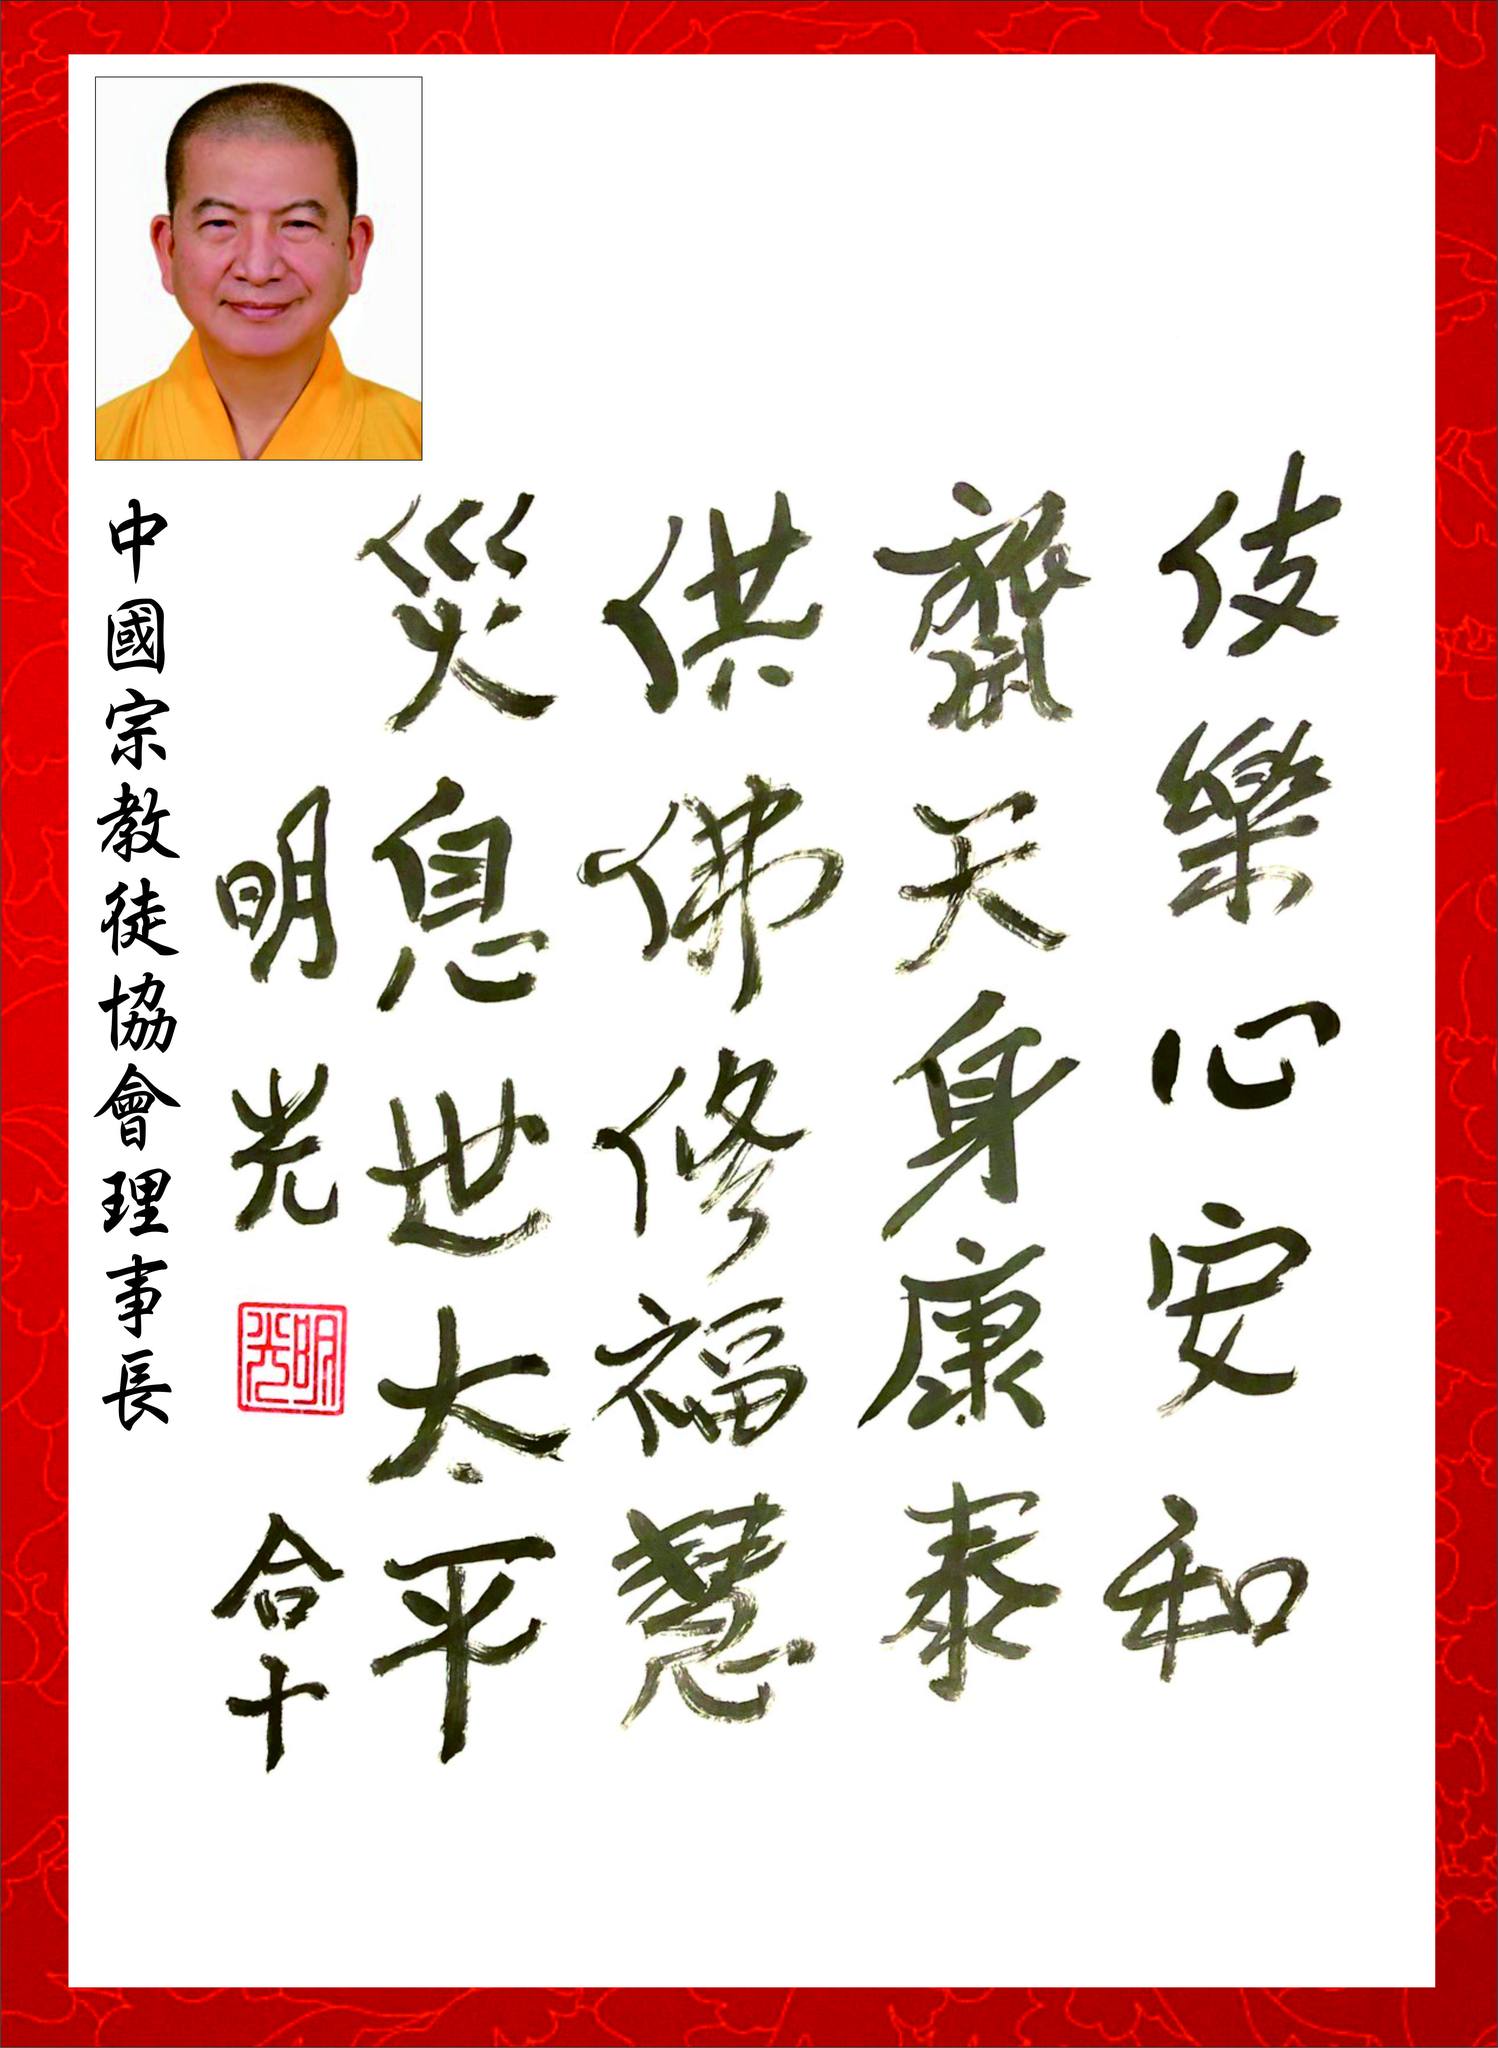 伎樂心安和
齋天身康泰
供佛修福慧
災息世太平
明光
明光
合十
中國宗教徒協會理事長